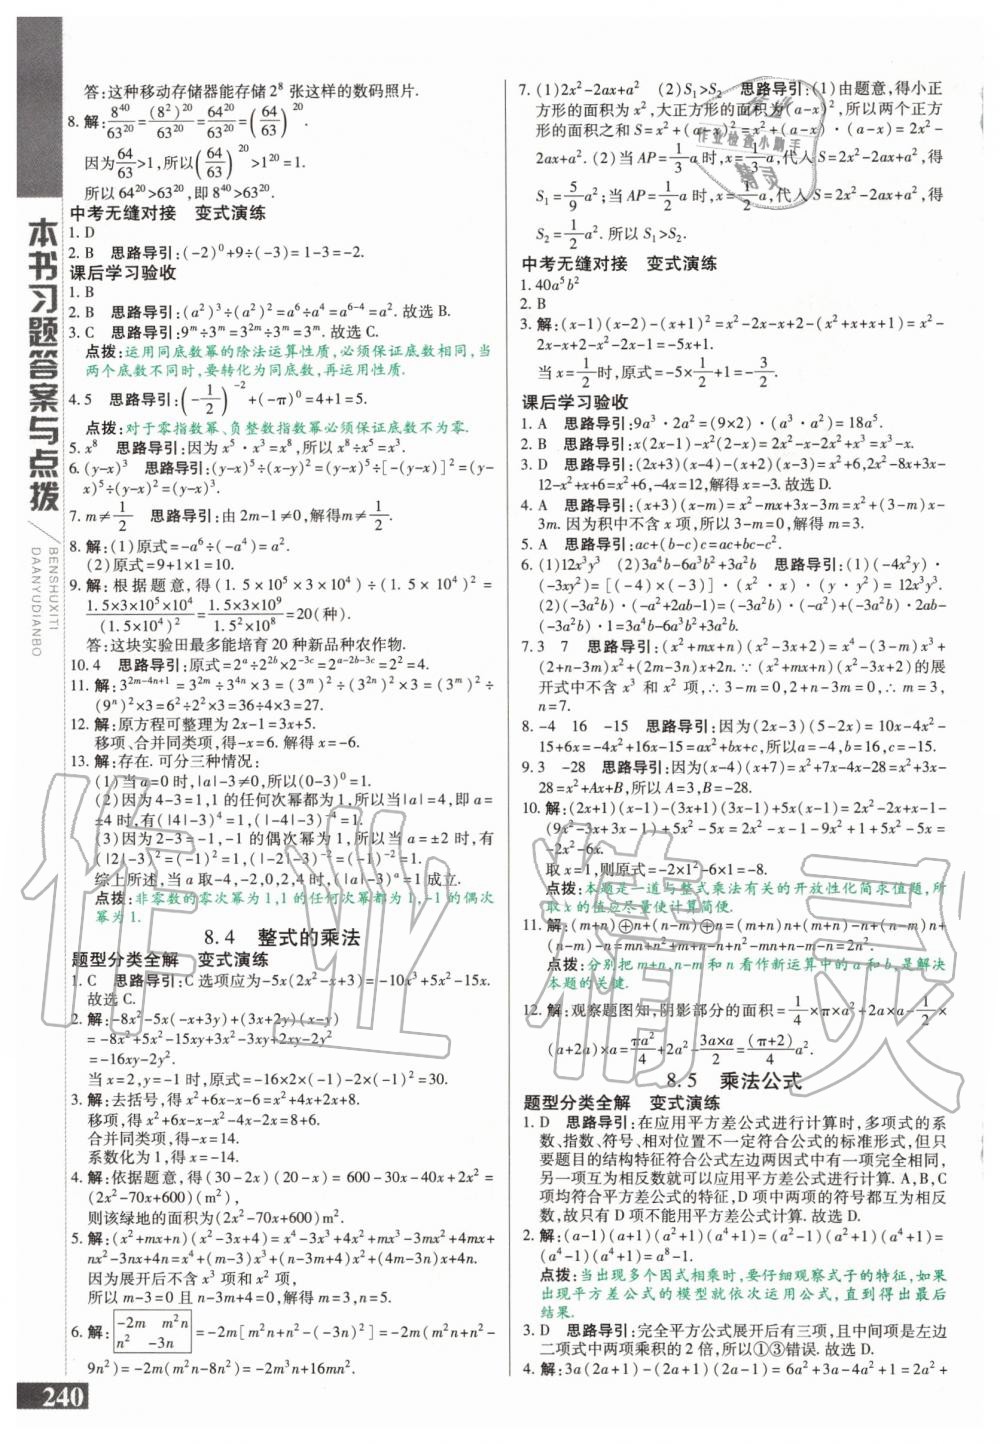 答:这种移动存储器能存储2⁸张这样的数码照片.
8. 解:8⁴⁰/63²⁰=(8²)²⁰/63²⁰=64²⁰/63²⁰=(64/63)²⁰.
因为64/63>1,所以(64/63)²⁰>1²⁰=1.
所以64²⁰>63²⁰,即8⁴⁰>63²⁰.
中考无缝对接 变式演练
1. D
2. B 思路导引:(-2)⁰+9÷(-3)=1-3=-2.
课后学习验收
1. B
2. B 思路导引:(a²)³÷(a²)²=a⁶÷a⁴=a⁶⁻⁴=a².故选B.
3. C 思路导引:9ᵐ÷3ᵐ=3²ᵐ÷3ᵐ=3ᵐ.故选C.
点拨:运用同底数幂的除法运算性质,必须保证底数相同,当
两个底数不同时,要转化为同底数,再运用性质.
4. 5 思路导引:(-1/2)⁻²+(-π)⁰=4+1=5.
点拨:对于零指数幂、负整数指数幂必须保证底数不为零.
5. x⁸ 思路导引:因为x⁵·x³=x⁸,所以x⁸÷x⁵=x³.
6. (y-x)³ 思路导引:(y-x)⁵÷(x-y)²=(y-x)⁵÷[-(y-x)]²=(y-
x)⁵÷(y-x)²=(y-x)³.
7. m≠1/2 思路导引:由2m-1≠0,解得m≠1/2.
8. 解:(1)原式=-a⁶÷(-a⁴)=a².
(2)原式=9+1×1=10.
9. 解:根据题意,得(1.5×10⁵×3×10⁴)÷(1.5×10⁴)²=
1.5×3×10⁵×10⁴/(1.5×10⁴)²=1.5×3×10⁹/1.5²×10⁸=20(种).
答:这块实验田最多能培育20种新品种农作物.
10. 4 思路导引:原式=2ᵃ÷2²ᵇ×2⁻³ᶜ=2ᵃ⁻²ᵇ⁻³ᶜ=2²=4.
11. 解:3²ᵐ⁻⁴ⁿ⁺¹=3²ᵐ÷3⁴ⁿ×3=(3ᵐ)²÷(3²ⁿ)²×3=(3ᵐ)²÷
(9ⁿ)²×3=6²÷2²×3=36÷4×3=27.
12. 解:原方程可整理为2x-1=3x+5.
移项、合并同类项,得-x=6.解得x=-6.
13. 解:存在.可分三种情况:
(1)当a=0时,|a|-3≠0,所以(0-3)⁰=1.
(2)因为4-3=1,1的任何次幂都为1,所以当|a|=4,即a=
±4时,有(|4|-3)⁴=1,(|-4|-3)⁻⁴=1.
(3)因为2-3=-1,-1的偶次幂为1,所以当a=±2时,有
(|2|-3)²=1,(|-2|-3)⁻²=1.
综上所述,当a取-4,-2,0,2,4时,(|a|-3)ᵃ=1成立.
点拨:非零数的零次幂为1,1的任何次幂都为1,-1的偶次
幂为1.
8.4 整式的乘法
题型分类全解 变式演练
1. C 思路导引:C选项应为-5x(2x²-x+3)=-10x³+5x²-15x.
故选C.
2. 解:-8x²-5x(-x+3y)+(3x+2y)(x-y)
=-8x²+5x²-15xy+3x²-3xy+2xy-2y²
=-16xy-2y².
当x=2,y=-1时,原式=-16×2×(-1)-2×(-1)²=30.
3. 解:去括号,得x²+6x-x-6-x²+2x-4x=8.
移项,得x²+6x-x-x²-4x+2x=8+6.
合并同类项,得-x=14.
系数化为1,得x=-14.
4. 解:依据题意,得(30-2x)(20-x)=600-30x-40x+2x²=
(2x²-70x+600)(m²),
则该绿地的面积为(2x²-70x+600)m².
5. 解:(x²+mx+n)(x²-3x+4)=x⁴-3x³+4x²+mx³-3mx²+4mx+
nx²-3nx+4n=x⁴+(m-3)x³+(n-3m+4)x²+(4m-3n)x+4n.
因为展开后不含x³项和x²项,
所以m-3=0且n-3m+4=0,解得m=3,n=5.
6. 解: -2m m²n
n² -3n =-2m[m²n+n²-(-3n)²]=-2m(m²n+n²-
9n²)=-2m(m²n-8n²)=-2m³n+16mn².
240
本书习题答案与点拨
BENSHUXITI
DAANYUDIANBO
7. (1)2x²-2ax+a² (2)S₁>S₂ 思路导引:(1)由题意,得小正
方形的面积为x²,大正方形的面积为(a-x)²,所以两个正方
形的面积之和S=x²+(a-x)²=x²+(a-x)(a-x)=2x²-
2ax+a².(2)当AP=1/3a时,x=1/3a,代入S=2x²-2ax+a²,得
S₁=5/9a²;当AP=1/2a时,x=1/2a,代入S=2x²-2ax+a²,得
S₂=1/2a².所以S₁>S₂.
中考无缝对接 变式演练
1. 40a⁵b²
2. B
3. 解:(x-1)(x-2)-(x+1)²=x²-2x-x+2-(x²+x+x+1)=x²-
2x-x+2-x²-2x-1=-5x+1.
当x=1/3时,原式=-5×1/3+1=-2/3.
课后学习验收
1. A 思路导引:9a³·2a²=(9×2)·(a³·a²)=18a⁵.
2. B 思路导引:x(2x-1)-x²(2-x)=2x²-x-2x²+x³=x³-x.
3. D 思路导引:(2x+3)(x-4)-(x+2)(x-3)=x²+6,2x²-8x+3x-
12-x²+x+6=x²+6,-4x=12,解得x=-3.故选D.
4. A 思路导引:(x+3)(x-m)=x²-mx+3x-3m=x²+(3-m)x-
3m.因为积中不含x项,所以3-m=0,解得m=3.
5. A 思路导引:ac+(b-c)c=ac+bc-c².
6. (1)12x³y³ (2)3a⁴b-6a³b²+3a²b 思路导引:(1)(-4x²y)·
(-3xy²)=[(-4)×(-3)]·(x²·x)·(y·y²)=12x³y³.
(2)(-3a²b)·(-a²+2ab-1)=(-3a²b)·(-a²)+(-3a²b)·2ab-
(-3a²b)·1=3a⁴b-6a³b²+3a²b.
7. 3 7 思路导引:(x²+mx+n)(x²-3x+2)=x⁴-(3-m)x³+
(2+n-3m)x²+(2m-3n)x+2n.∵(x²+mx+n)(x²-3x+2)的展
开式中不含x³和x²项,∴3-m=0,2+n-3m=0,∴m=3,
n=7.
8. -4 16 -15 思路导引:因为(2x-3)(5-2x)=10x-4x²-
15+6x=-4x²+16x-15=ax²+bx+c,所以a=-4,b=16,c=-15.
9. 3 -28 思路导引:因为(x-4)(x+7)=x²+7x-4x-28=x²+3x
-28=x²+Ax+B,所以A=3,B=-28.
10. 解:(2x+1)(x-1)-(3x+1)(3x-1)+5x(x-1)=2x²-2x+x-1-
(9x²-3x+3x-1)+5x²-5x=2x²-x-1-9x²+1+5x²-5x=
-2x²-6x.
取x=1,则原式=-2×1²-6×1=-8.
点拨:本题是一道与整式乘法有关的开放性化简求值题,所
取x的值应尽量使计算简便.
11. 解:(m+n)⊕n+(n-m)⊕n=(m+n)n+(m+n)-n+(n-m)n+
(n-m)-n=mn+n²+m+n-n+n²-mn+n-m-n=2n².
点拨:分别把m+n,n-m和n看作新运算中的a和b,是解决
本题的关键.
12. 解:观察题图知,阴影部分的面积=1/4×π×a²+2a×a-1/2×
(a+2a)×a=πa²/4+2a²-3a×a/2=(π+2)/4 a².
8.5 乘法公式
题型分类全解 变式演练
1. D 思路导引:在应用平方差公式进行计算时,多项式的系
数、指数、符号、相对位置不一定符合公式的标准形式,但只
要题目的结构特征符合公式左边两因式中有一项完全相同,
另一项互为相反数就可以应用平方差公式进行计算.A,B,C
项均符合平方差公式的特征,D项中两项的符号都互为相反
数,故选项D不能用平方差公式计算.故选D.
2. 解:(a-1)(a+1)(a²+1)(a⁴+1)=(a²-1)(a²+1)(a⁴+1)=
(a⁴-1)(a⁴+1)=a⁸-1.
点拨:当出现多个因式相乘时,要仔细观察式子的特征,如果
出现平方差公式的模型就依次运用公式,直到得出最后
结果.
3. D 思路导引:完全平方公式展开后有三项,且中间项是左边
二项式中两项乘积的2倍,所以①③错误.故选D.
4. 解:3a(2a+1)-(2a+1)(2a-1)=6a²+3a-4a²+1=2a²+
作业检查小助手
精灵
作业精灵